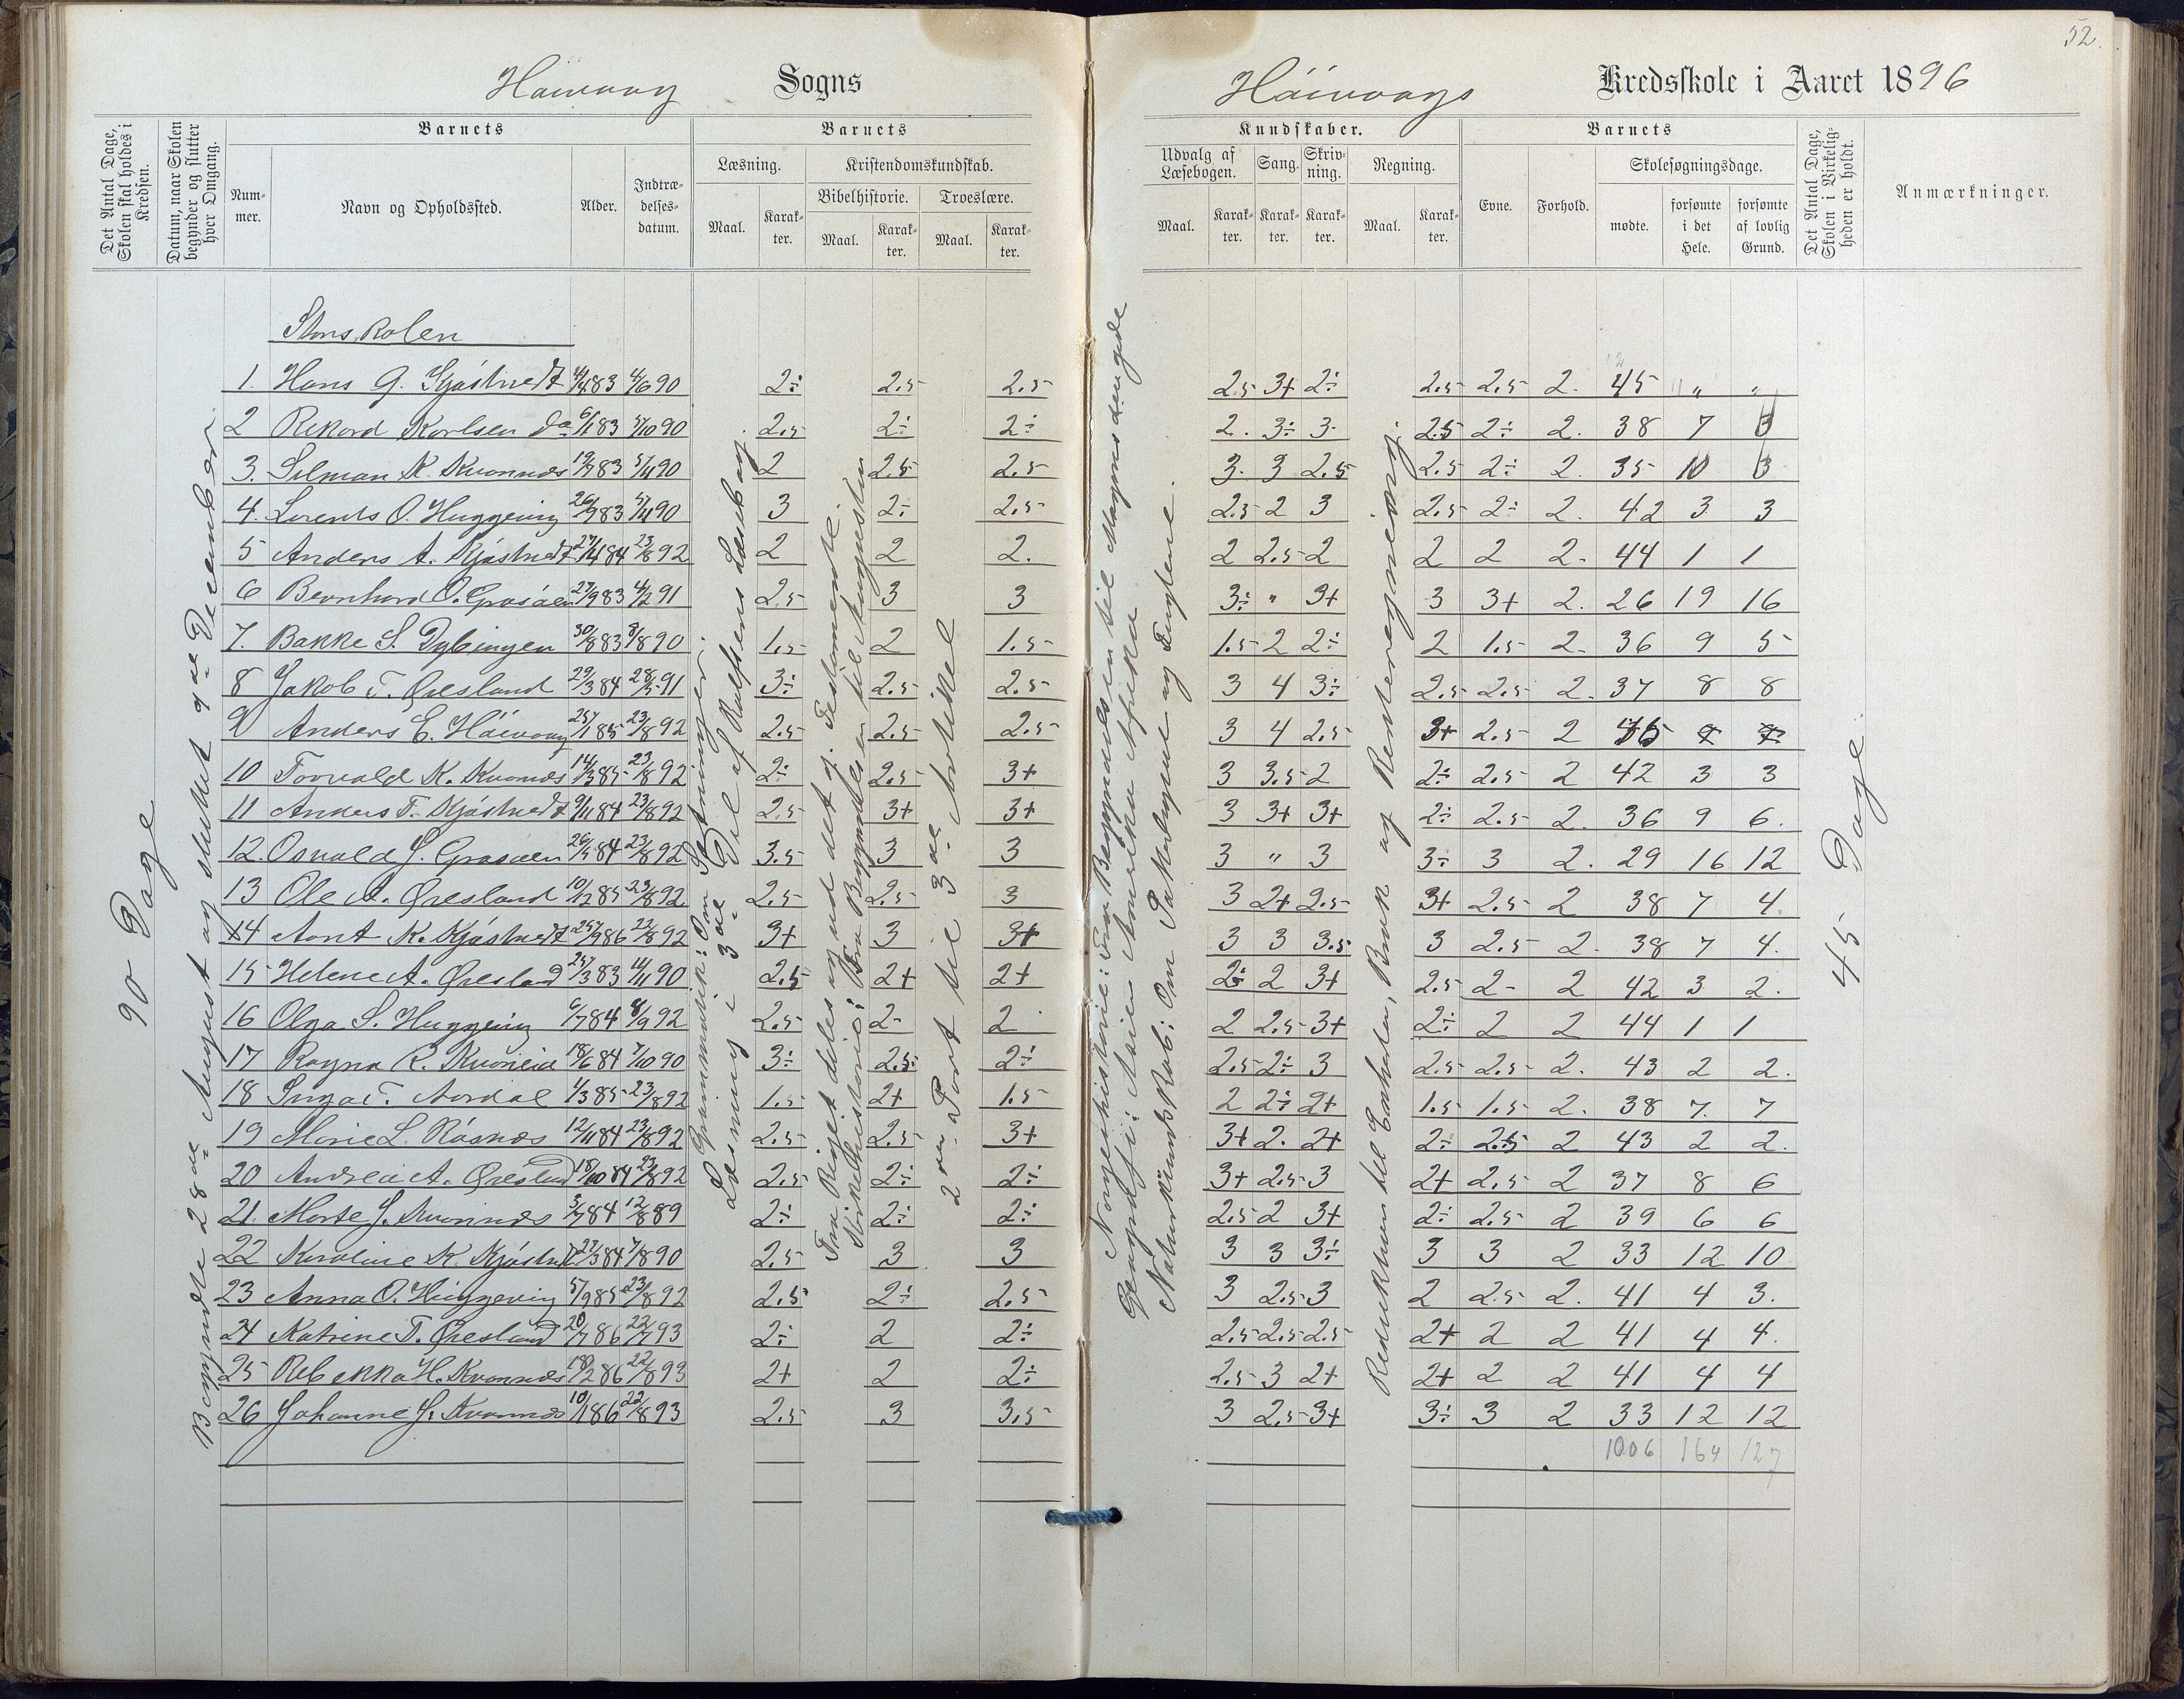 52.
Høivaag Sogns
Høivaags Kredsskole i Aaret 1896
Det Antal Dage, Skolen skal holdes i Kredsen.
Datum, naar Skolen begynder og slutter hver Omgang.
Barnets
Nummer.
Navn og Opholdssted.
Alder.
Indtrædelses-datum.
Barnets
Læsning.
Maal.
Karakter.
Kristendomskundskab.
Bibelhistorie.
Maal.
Karakter.
Troeslære.
Maal.
Karakter.
Kundskaber.
Udvalg af Læsebogen.
Maal.
Karakter.
Sang.
Karakter.
Skrivning.
Karakter.
Regning.
Maal.
Karakter.
Barnets
Evne.
Forhold.
Skolesøgningsdage.
mødte.
forsømte i det Hele.
forsømte af lovlig Grund.
Det Antal Dage, Skolen i Virkeligheden er holdt.
Anmærkninger.
90 Dage
Begyndte 28de August og sluttet 9de December.
Læsning i 3die Del af Rolfsens Læsebog.
Grammatik: Om Sætninger.
Fra Riget deles og ud det gl. Testamente.
Kirkehistorie: Fra Begyndelsen til Augustin
2den Part til 3die Artikel
Norgeshistorie: Fra Begyndelsen til Magnus den gode
Geografi: Asien Amerika Afrika
Naturkundskab: Om Pattedyrene og Fuglene.
Reduktion hel Enhder, Brøk og Rentereqning.
45 Dage
Storskolen
1. Hans G. Kjøstvedt 4/4 83 4/6 90 2÷ 2.5 2.5 2.5 3+ 2÷ 2.5 2.5 2. 45 " "
2 Rikard Karlsen do 6/1 83 5/10 90 2.5 2÷ 2÷ 2. 3÷ 3. 2.5 2÷ 2. 38 7
3. Silman K. Kvannes 19/7 83 5/11 90 2 2.5 2.5 3. 3 2.5 2.5 2÷ 2. 35 10
4. Lorents O. Huggeviig 26/9 83 5/11 90 3 2÷ 2.5 2.5 2 3 2.5 2÷ 2. 42 3 3
5 Anders A. Kjøstvedt 27/4 84 23/8 92 2 2 2. 2 2.5 2 2 2 2. 44 1 1
6 Bernhard O. Grasåen 27/9 83 4/2 91 2.5 3 3 3÷ " 3+ 3 3+ 2. 26 19 16
7. Bakke S. Dybingen 30/8 83 8/8 90 1.5 2 1.5 1.5 2 2÷ 2 1.5 2. 36 9 5
8 Jakob T. Øresland 29/3 84 28/5 91 3÷ 2.5 2.5 3 4 3÷ 2.5 2.5 2. 37 8 8
9 Anders E. Høivaag 25/1 85 23/8 92 2.5 2.5 2.5 3 4 2.5 3+ 2.5 2
10 Torvald K. Kvannes 14/3 85 23/8 92 2÷ 2.5 3+ 3 3.5 2 2÷ 2.5 2 42 3 3
11 Anders T. Kjøstvedt 9/11 84 23/8 92 2.5 3+ 3+ 3 3+ 3+ 2÷ 2.5 2. 36 9 6.
12. Osvald J. Grasaen 26/5 84 23/8 92 3.5 3 3 3 " 3 3÷ 3 2. 29 16 12
13 Ole A. Øresland 10/12 85 23/8 92 2.5 2.5 3 3 2+ 2.5 3+ 2.5 2 38 7 4.
14 Arnt K. Kjøstvedt 25/9 86 23/8 92 3+ 3 3+ 3 3 3.5 3 2.5 2. 38 7 4.
15 Helene A. Øresland 25/3 83 11/11 90 2.5 2+ 2+ 2÷ 2 3+ 2.5 2- 2 42 3 2.
16 Olga S. Huggeviig 6/7 84 8/9 92 2.5 2- 2 2 2.5 3+ 2÷ 2 2 44 1 1
17 Ragna R. Kvåneid 18/6 84 7/10 90 3÷ 2.5 2÷ 2.5 2÷ 3 2.5 2.5 2. 43 2 2.
18 Inga T. Aardal 4/3 85 23/8 92 1.5 2+ 1.5 2 2÷ 2+ 1.5 1.5 2. 38 7. 7
19 Marie L. Røsnæs 12/11 84 23/8 92 2.5 2.5 3+ 3+ 2. 2+ 2÷ 2.5 2 43 2 2.
20 Andrea A. Øresland 18/10 84 23/8 92 2.5 2÷ 2÷ 3+ 2.5 3 2+ 2.5 2 37 8 6
21. Marte J. Kvannes 3/7 84 12/8 89 2÷ 2÷ 2÷ 2.5 2 3+ 2÷ 2.5 2 39 6 6
22 Karoline K. Kjøstvedt 27/3 84 7/8 90 2.5 3 3 3 3 3÷ 3 3 2 33 12 10
23 Anna O. Huggeviig 5/9 85 23/8 92 2.5 2÷ 2.5 3 2.5 3 2 2.5 2. 41 4 3.
24 Katrine T. Øresland 20/7 86 22/7 93 2÷ 2 2÷ 2.5 2.5 2.5 2+ 2 2 41 4 4.
25 Rebekka H. Kvannes 18/2 86 22/8 93 2+ 2 2÷ 2.5 3 2+ 2+ 2 2 41 4 4
26 Johanne J. Kvannes 10/1 86 22/8 93 2.5 3 3.5 3 2.5 3+ 3÷ 3 2 33 12 12
1006 164 127